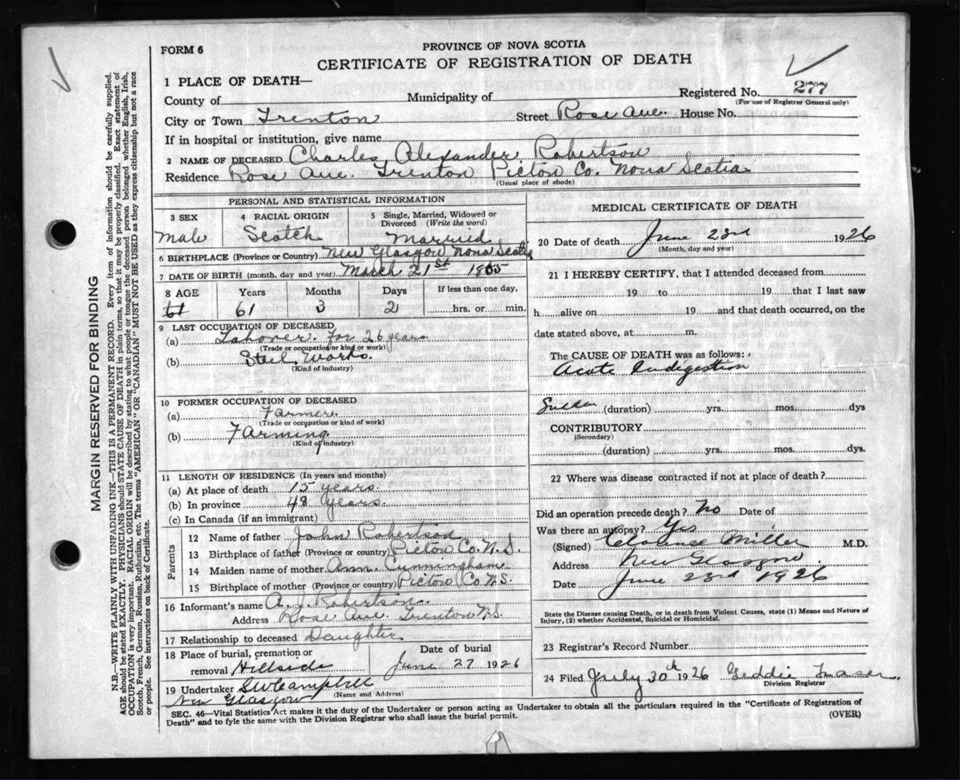 FORM 6
PROVINCE OF NOVA SCOTIA
CERTIFICATE OF REGISTRATION OF DEATH
1 PLACE OF DEATH—
Registered No. 277
(For use of Registrar General only)
County of Municipality of
City or Town Trenton Street Rose Ave. House No.
If in hospital or institution, give name
2 NAME OF DECEASED Charles Alexander Robertson
Residence Rose Ave. Trenton Pictou Co. Nova Scotia
(Usual place of abode)
PERSONAL AND STATISTICAL INFORMATION
3 SEX 4 RACIAL ORIGIN 5 Single, Married, Widowed or Divorced (Write the word)
Male Scotch Married
6 BIRTHPLACE (Province or Country) New Glasgow Nova Scotia
7 DATE OF BIRTH (month, day and year) March 21st 1865
8 AGE Years Months Days If less than one day,
61 61 3 2 hrs. or min.
9 LAST OCCUPATION OF DECEASED
(a) Laborer for 26 years
(Trade or occupation or kind of work)
(b) Steel Works.
(Kind of industry)
10 FORMER OCCUPATION OF DECEASED
(a) Farmer.
(Trade or occupation or kind of work)
(b) Farming
(Kind of industry)
11 LENGTH OF RESIDENCE (In years and months)
(a) At place of death 15 years.
(b) In province 48 years.
(c) In Canada (if an immigrant)
Parents
12 Name of father John Robertson
13 Birthplace of father (Province or country) Pictou Co. N.S.
14 Maiden name of mother Ann Cunningham
15 Birthplace of mother (Province or country) Pictou Co N.S.
16 Informant's name A. J. Robertson.
Address Rose Ave Trenton N.S
17 Relationship to deceased Daughter
18 Place of burial, cremation or removal Hillside
Date of burial
June 27 1926
19 Undertaker G W Campbell
(Name and Address)
New Glasgow
MEDICAL CERTIFICATE OF DEATH
20 Date of death June 23rd 1926
(Month, day and year)
21 I HEREBY CERTIFY, that I attended deceased from
19 to 19 that I last saw
h alive on 19 and that death occurred, on the
date stated above, at m.
The CAUSE OF DEATH was as follows:
Acute Indigestion
Sudden (duration) yrs. mos. dys
CONTRIBUTORY
(Secondary)
(duration) yrs. mos. dys
22 Where was disease contracted if not at place of death?
Did an operation precede death? No Date of
Was there an autopsy? Yes
(Signed) Clarence Miller M.D.
Address New Glasgow
Date June 23rd 1926
State the Disease causing Death, or in death from Violent Causes, state (1) Means and Nature of
Injury, (2) whether Accidental, Suicidal or Homicidal.
23 Registrar's Record Number
24 Filed July 30th 1926 Geddie Fraser
Division Registrar
SEC. 46—Vital Statistics Act makes it the duty of the Undertaker or person acting as Undertaker to obtain all the particulars required in the "Certificate of Registration of
Death" and to fyle the same with the Division Registrar who shall issue the burial permit. (OVER)
MARGIN RESERVED FOR BINDING
N.B.—WRITE PLAINLY WITH UNFADING INK—THIS IS A PERMANENT RECORD. Every item of information should be carefully supplied.
AGE should be stated EXACTLY. PHYSICIANS should STATE CAUSE OF DEATH in plain terms, so that it may be properly classified. Exact statement of
OCCUPATION is very important. RACIAL ORIGIN will be described by stating to what people or tongue the deceased person belonged whether English, Irish,
Scotch, French, German, Russian, Ruthenian, etc. The terms "AMERICAN" OR "CANADIAN" MUST NOT BE USED as they express citizenship but not a race
or people. See instructions on back of Certificate.